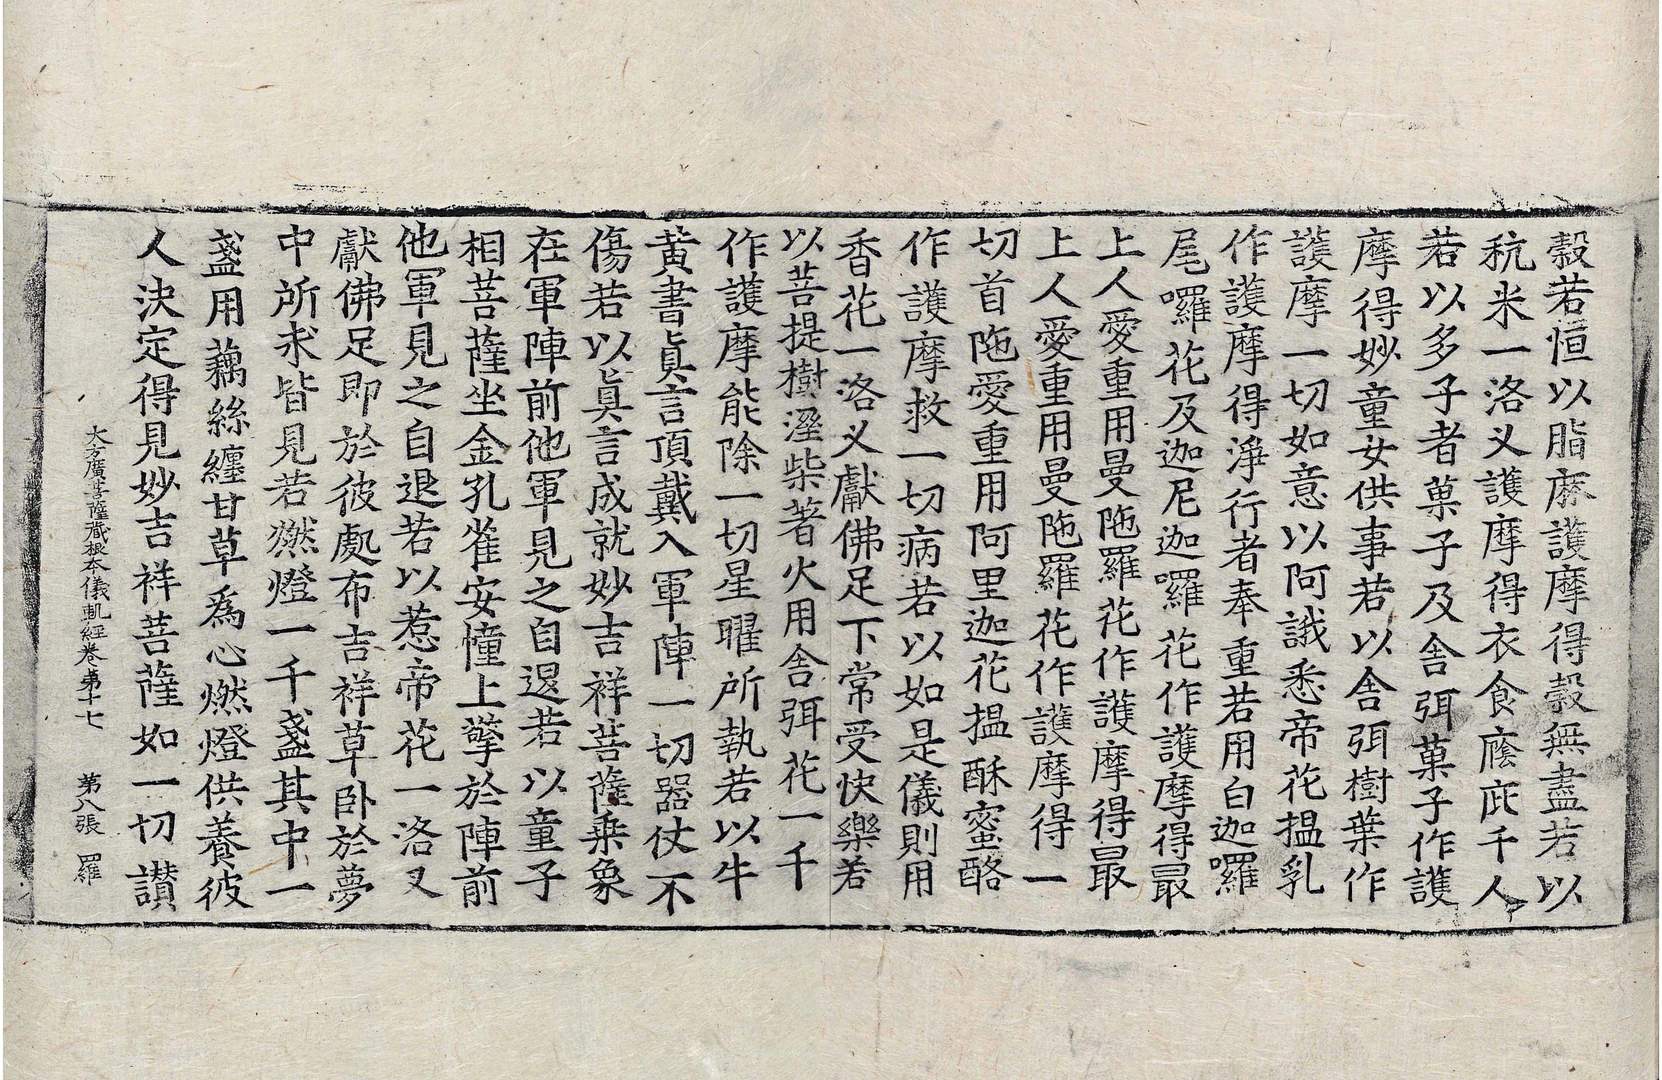 穀若恒以脂麻護摩得穀無盡若以
秔米一洛叉護摩得衣食廕庇千人
若以多子者菓子及舍弭菓子作護
摩得妙童女供事若以舍弭樹葉作
護摩一切如意以阿誐悉帝花搵乳
作護摩得淨行者奉重若用白迦囉
尾囉花及迦尼迦囉花作護摩得最
上人愛重用曼陁羅花作護摩得最
上人愛重用曼陁羅花作護摩得一
切首陁愛重用阿里迦花搵酥蜜酪
作護摩救一切病若以如是儀則用
香花一洛叉獻佛足下常受快樂若
以菩提樹溼柴著火用舍弭花一千
作護摩能除一切星曜所執若以牛
黃書眞言頂戴入軍陣一切器仗不
傷若以眞言成就妙吉祥菩薩乗象
在軍陣前他軍見之自退若以童子
相菩薩坐金孔雀安幢上擎於陣前
他軍見之自退若以惹帝花一洛叉
獻佛足即於彼處布吉祥草卧於夢
中所求皆見若燃燈一千盞其中一
盞用藕絲纏甘草爲心燃燈供養彼
人決定得見妙吉祥菩薩如一切讃
大方廣菩薩藏根本儀軌經卷第十七　第八張　羅